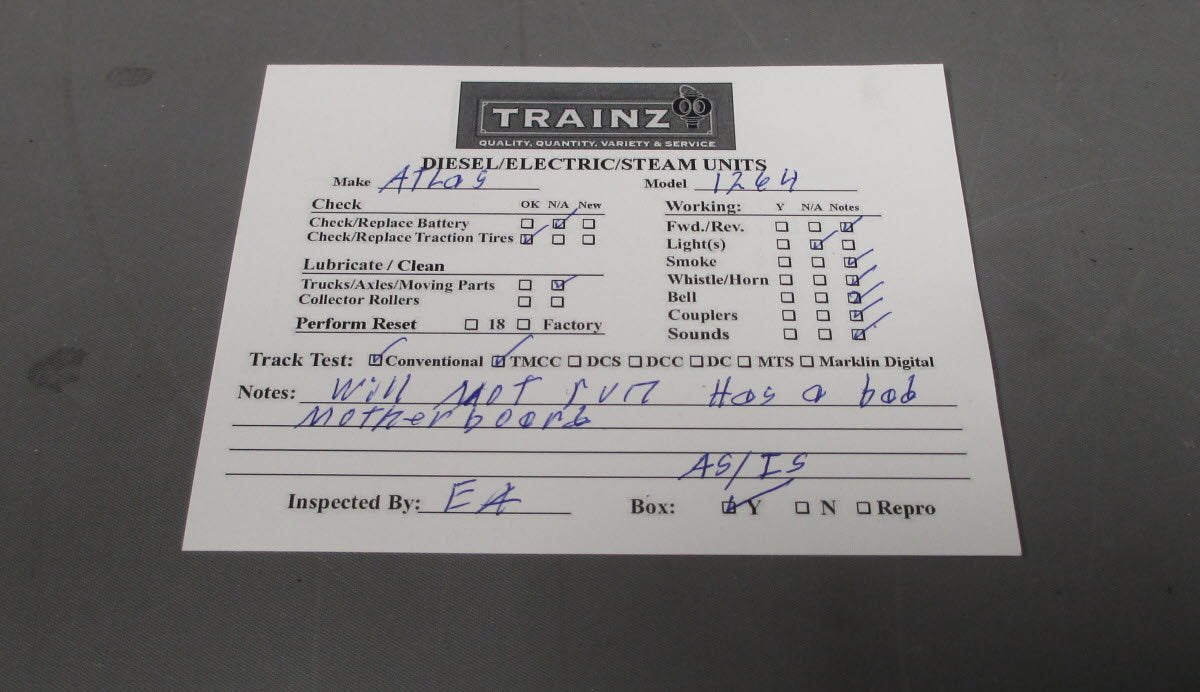 TRAINZ
QUALITY, QUANTITY, VARIETY & SERVICE
DIESEL/ELECTRIC/STEAM UNITS
Make Atlas Model 1264
Check OK N/A New
Check/Replace Battery
Check/Replace Traction Tires
Lubricate / Clean
Trucks/Axles/Moving Parts
Collector Rollers
Perform Reset 18 Factory
Working: Y N/A Notes
Fwd./Rev.
Light(s)
Smoke
Whistle/Horn
Bell
Couplers
Sounds
Track Test: Conventional TMCC DCS DCC DC MTS Marklin Digital
Notes: Will Not run Has a bad
Motherboard
AS/IS
Inspected By: EA Box: Y N Repro